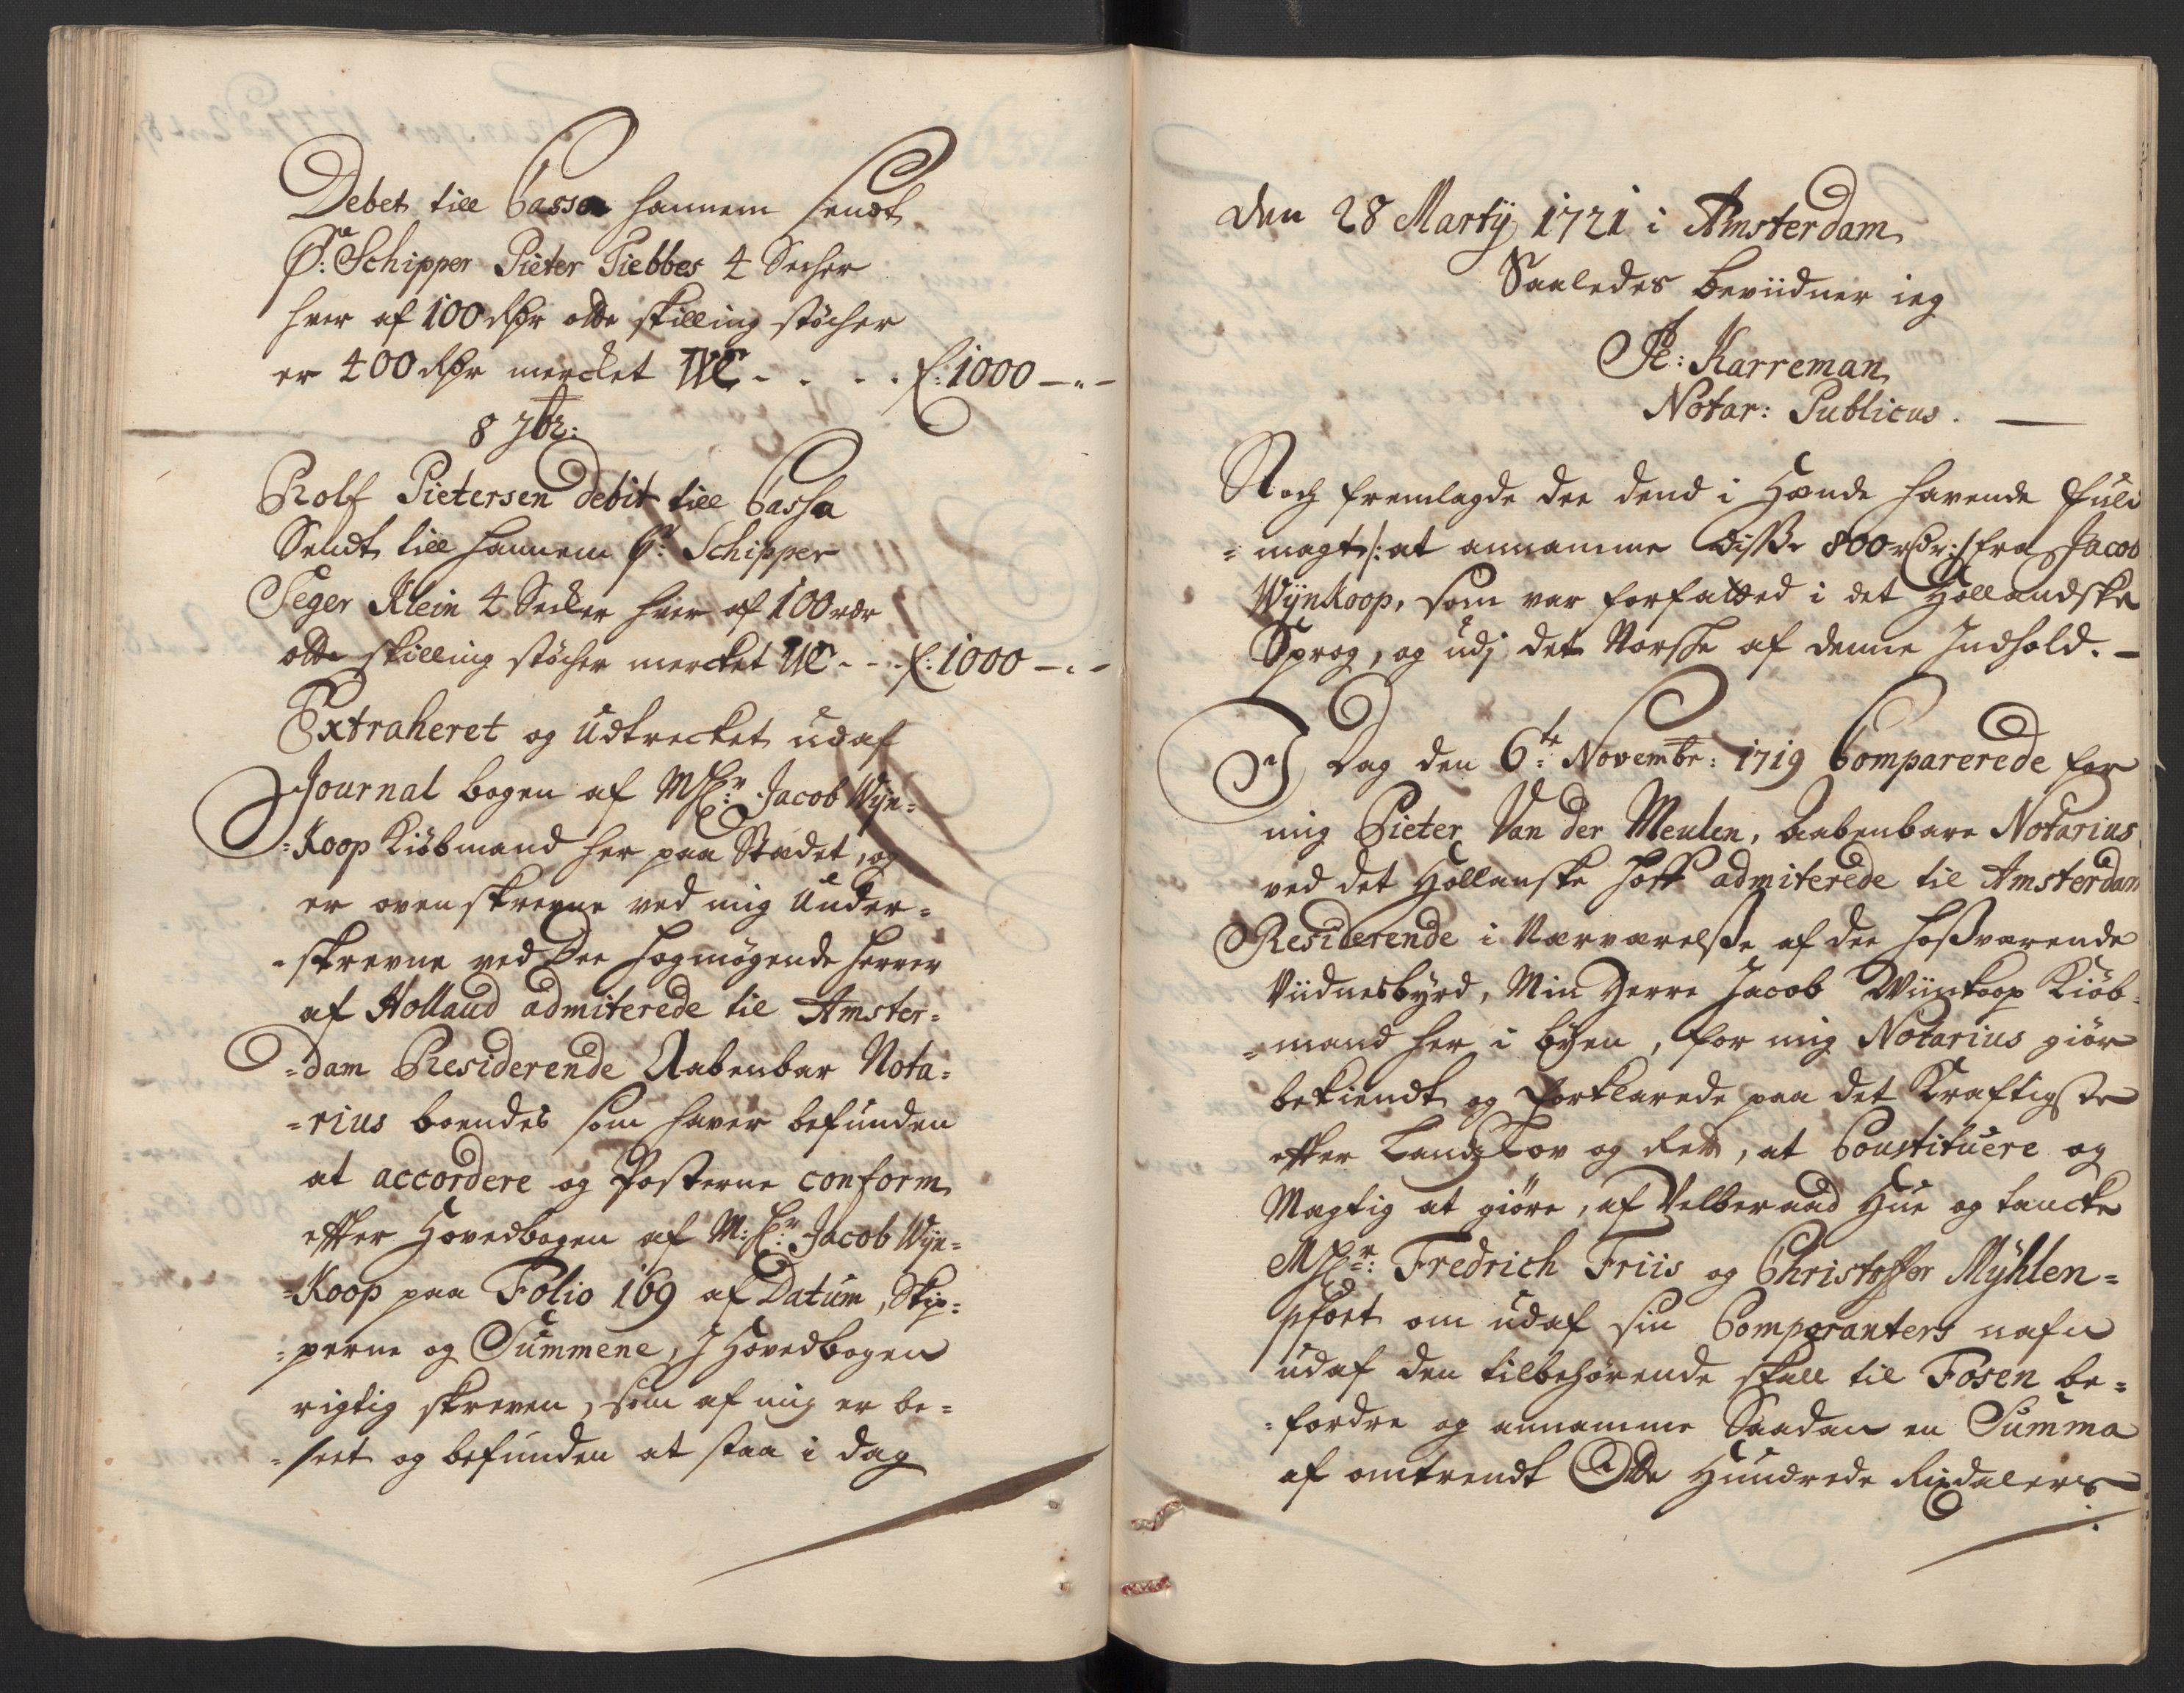 Debet till Cassa hannem sendt
Pr: Schipper Pieter Piebbes 4 Secher
hver af 100 rdr otte skilling støcher
er 400 rdr mercket WC - . . . f: 1000 - " -
8 7br:
Rolf Pietersen debit till Cassa
Sendt till hannem Pr: Schipper
Seger Klein 4 Secker hver af 100 rdr
otte skilling støcher mercket WC - - . f: 1000 - " -
Extraheret og udtrecket udaf
Journal bogen af Mhr: Jacob Wijn=
=koop Kiøbmand her paa Stædet, og
er ovenskrevne ved mig under=
=skrevne ved Dee Høgmøgende herrer
af Holland admiterede til Amster=
=dam Residerende Aabenbar Nota=
=rius boendes som haver befunden
at accordere og Posterne conform
efter Hovedbogen af M: hr: Jacob Wijn=
=koop paa Folio 169 af Datum, Skip=
=perne og Summene, I Hovedbogen
rigtig skreven, som af mig er be=
=seet og befunden at staa i dag
den 28 Martij 1721 i Amsterdam
Saaledes beviidner ieg
Karreman
Notar: Publicus.
Noch fremlagde dee dend i Hænde havende fuld
=magt /: at annamme disse 800 rdr :/ fra Jacob
Wijnkoop, som var forfatted i det Hollandske
Sprog, og udj det Norske af denne Indhold. -
I Dag den 6te Novembr: 1719 Comparerede for
mig Pieter Van der Meulen, Aabenbare Notarius
ved det Hollanske Hoff admiterede til Amsterdam
Residerende i Nærværelsse af dee hossværende
Viidnesbyrd, Min Herre Jacob Wiinkoop Kiøb=
=mand her i byen, for mig Notarius giør
bekiendt og forklarede paa det Kraftigste
efter Landz Lov og Ret, at Constituere og
Magtig at giøre, af Velberaad Hue og tancke
Mhr: Fredrich Friis og Christoffer Myhlen=
pfort om udaf sin Comparanters nafn
udaf den tilbehørende skall til Fosen be=
=fordre og annamme Saadan en Summa
af omtrendt Otte Hundrede Rixdalers